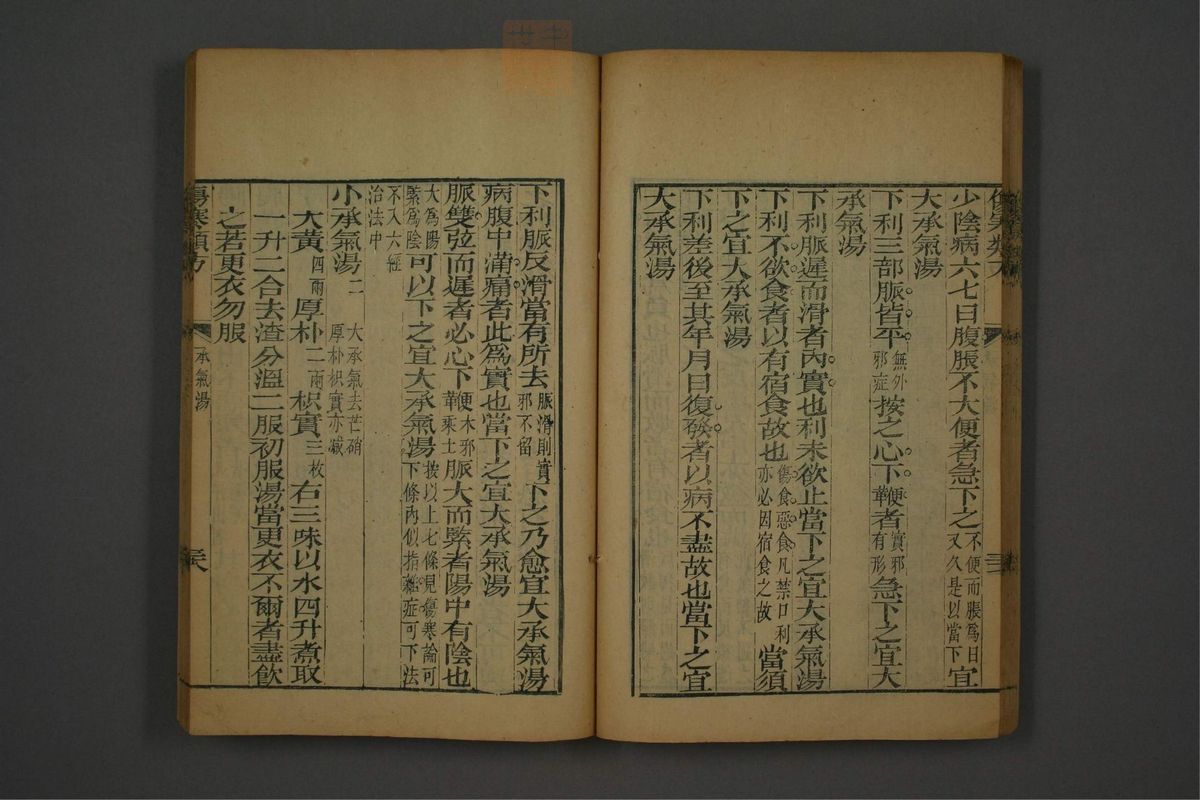 少陰病六七日腹脹不大便者急下之不便而脹爲日又久是以當下宜
大承氣湯
下利三部脈皆平無外邪症按之心下鞕者有形實邪急下之宜大
承氣湯
下利脈遲而滑者內實也利未欲止當下之宜大承氣湯
下利不欲食者以有宿食故也傷食惡食凡禁口利亦必因宿食之故當須
下之宜大承氣湯
下利差後至其年月日復發者以病不盡故也當下之宜
大承氣湯
下利脈反滑當有所去脈滑則實邪不留下之乃愈宜大承氣湯
病腹中滿痛者此爲實也當下之宜大承氣湯
脈雙弦而遲者必心下鞕木邪乘土脈大而緊者陽中有陰也
大爲陽緊爲陰可以下之宜大承氣湯按以上七條見傷寒論可下條內似指雜症可下法
不入六經治法中
小承氣湯二 大承氣去芒硝厚朴枳實亦減
大黃四兩 厚朴二兩 枳實三枚 右三味以水四升煮取
一升二合去渣分溫二服初服湯當更衣不爾者盡飲
之若更衣勿服
傷寒類方 承氣湯